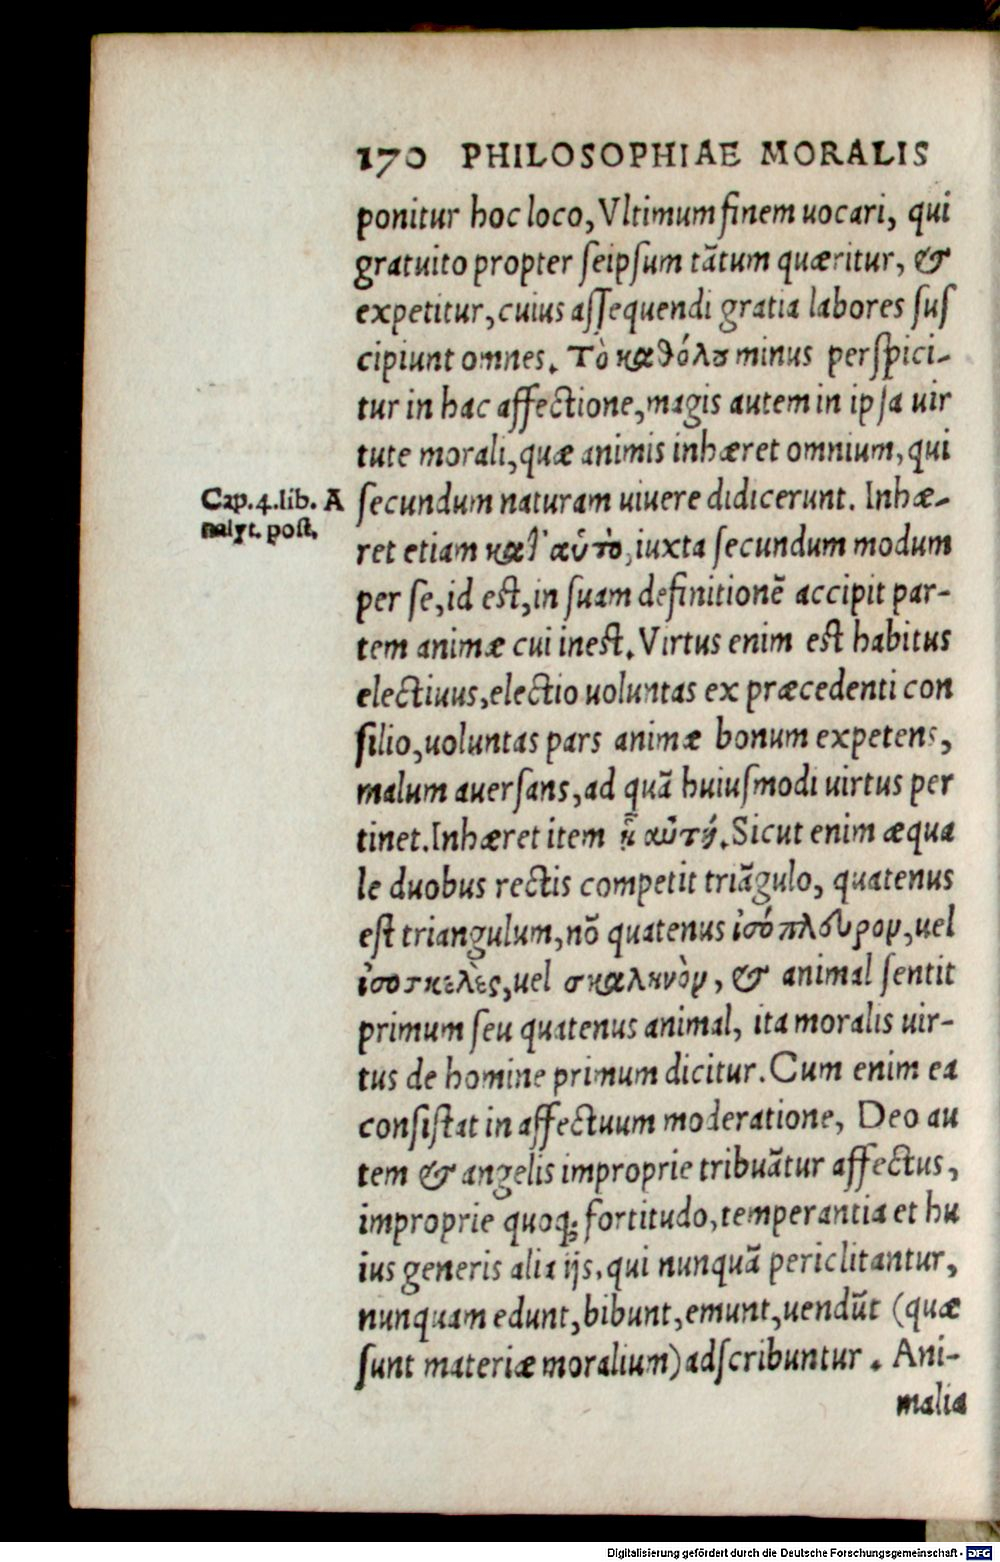 170 PHILOSOPHIAE MORALIS
ponitur hoc loco, Vltimum finem uocari, qui
gratuito propter seipsum tãtum quæritur, &
expetitur, cuius assequendi gratia labores sus
cipiunt omnes. Τὸ καθόλου minus perspici-
tur in hac affectione, magis autem in ipsa uir
tute morali, quæ animis inhæret omnium, qui
Cap. 4. lib. A
nalyt. post.
secundum naturam uiuere didicerunt. Inhæ-
ret etiam καθ' αὑτὸ, iuxta secundum modum
per se, id est, in suam definitionẽ accipit par-
tem animæ cui inest. Virtus enim est habitus
electiuus, electio uoluntas ex præcedenti con
silio, uoluntas pars animæ bonum expetens,
malum auersans, ad quã huiusmodi uirtus per
tinet. Inhæret item ᾗ αὐτό. Sicut enim æqua
le duobus rectis competit triãgulo, quatenus
est triangulum, nõ quatenus ἰσόπλευρον, uel
ἰσοσκελὲς, uel σκαληνὸν, & animal sentit
primum seu quatenus animal, ita moralis uir-
tus de homine primum dicitur. Cum enim ea
consistat in affectuum moderatione, Deo au
tem & angelis improprie tribuãtur affectus,
improprie quoq; fortitudo, temperantia et hu
ius generis alia ijs, qui nunquã periclitantur,
nunquam edunt, bibunt, emunt, uendũt (quæ
sunt materiæ moralium) adscribuntur. Ani-
malia
Digitalisierung gefördert durch die Deutsche Forschungsgemeinschaft - DFG